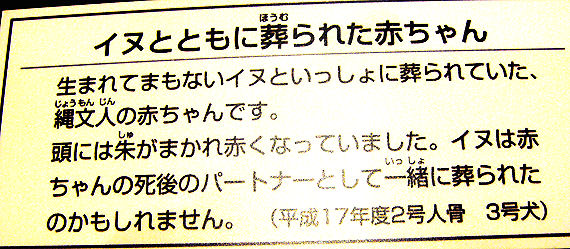 イヌとともに葬られた赤ちゃん
生まれてまもないイヌといっしょに葬られていた、
縄文人の赤ちゃんです。
頭には朱がまかれ赤くなっていました。イヌは赤
ちゃんの死後のパートナーとして一緒に葬られた
のかもしれません。（平成17年度2号人骨　3号犬）